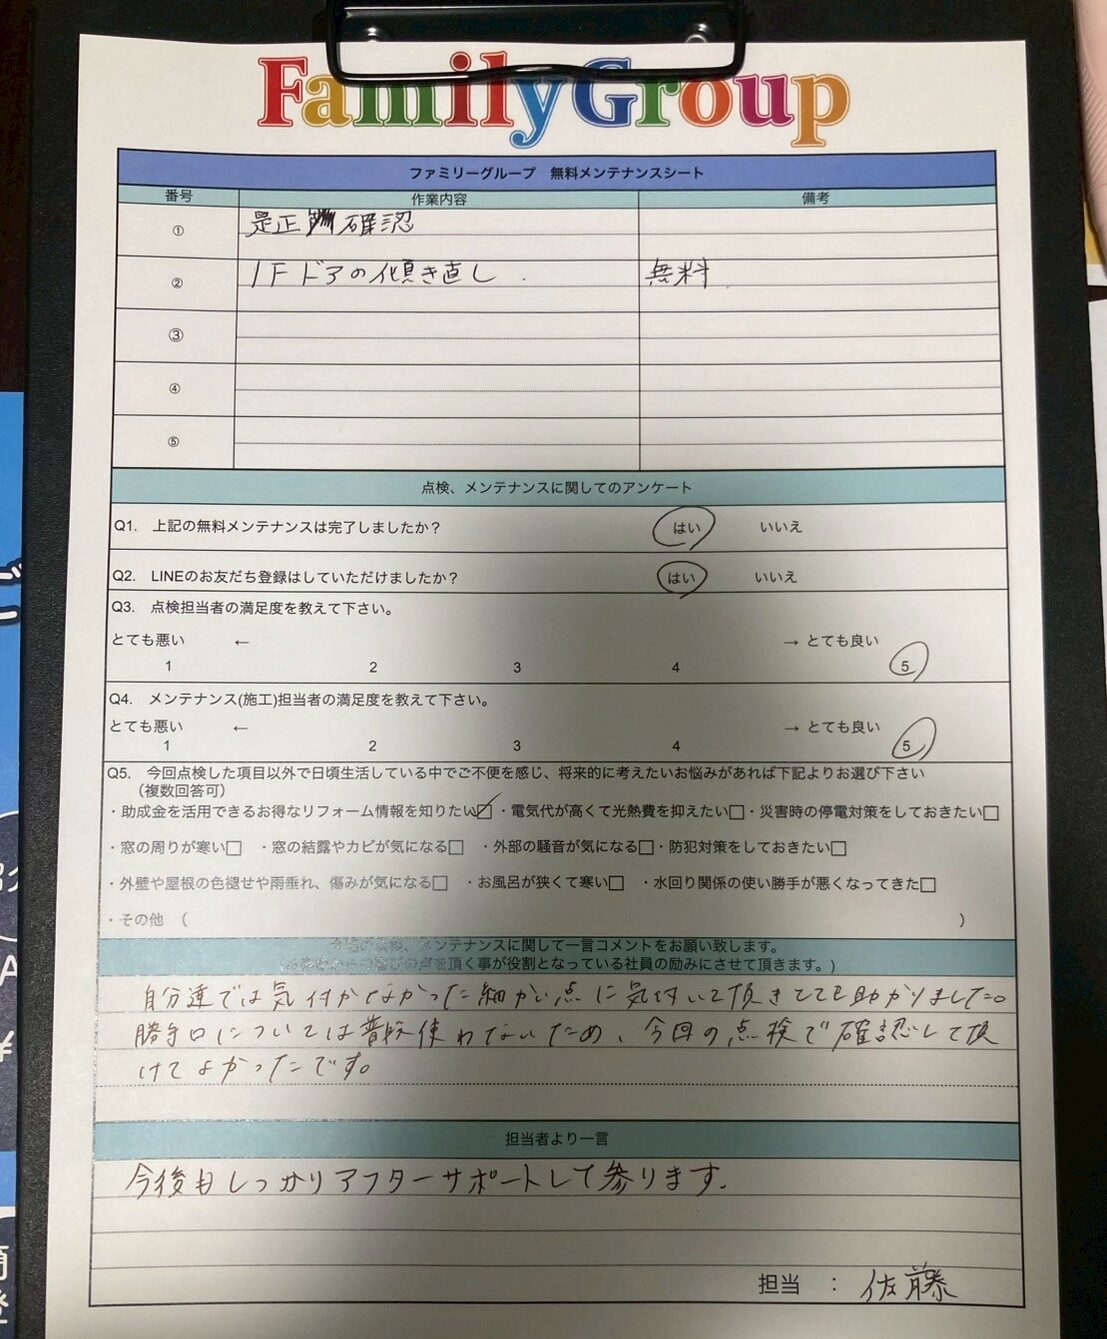 FamilyGroup
ファミリーグループ　無料メンテナンスシート
番号 作業内容 備考
① 是正 確認
② 1Fドアの傾き直し 無料
③
④
⑤
点検、メンテナンスに関してのアンケート
Q1.　上記の無料メンテナンスは完了しましたか？ はい いいえ
Q2.　LINEのお友だち登録はしていただけましたか？ はい いいえ
Q3.　点検担当者の満足度を教えて下さい。
とても悪い ← → とても良い
1 2 3 4 5
Q4.　メンテナンス(施工)担当者の満足度を教えて下さい。
とても悪い ← → とても良い
1 2 3 4 5
Q5.　今回点検した項目以外で日頃生活している中でご不便を感じ、将来的に考えたいお悩みがあれば下記よりお選び下さい
（複数回答可）
・助成金を活用できるお得なリフォーム情報を知りたい☑ ・電気代が高くて光熱費を抑えたい□ ・災害時の停電対策をしておきたい□
・窓の周りが寒い□ ・窓の結露やカビが気になる□ ・外部の騒音が気になる□ ・防犯対策をしておきたい□
・外壁や屋根の色褪せや雨垂れ、傷みが気になる□ ・お風呂が狭くて寒い□ ・水回り関係の使い勝手が悪くなってきた□
・その他　(　　　)
メンテナンスに関して一言コメントをお願い致します。
声を頂く事が役割となっている社員の励みにさせて頂きます。)
自分達では気付かなかった細かい点に気付いて頂きとても助かりました。
勝手口については普段使わないため、今回の点検で確認して頂
けてよかったです。
担当者より一言
今後もしっかりアフターサポートして参ります.
担当　：　佐藤